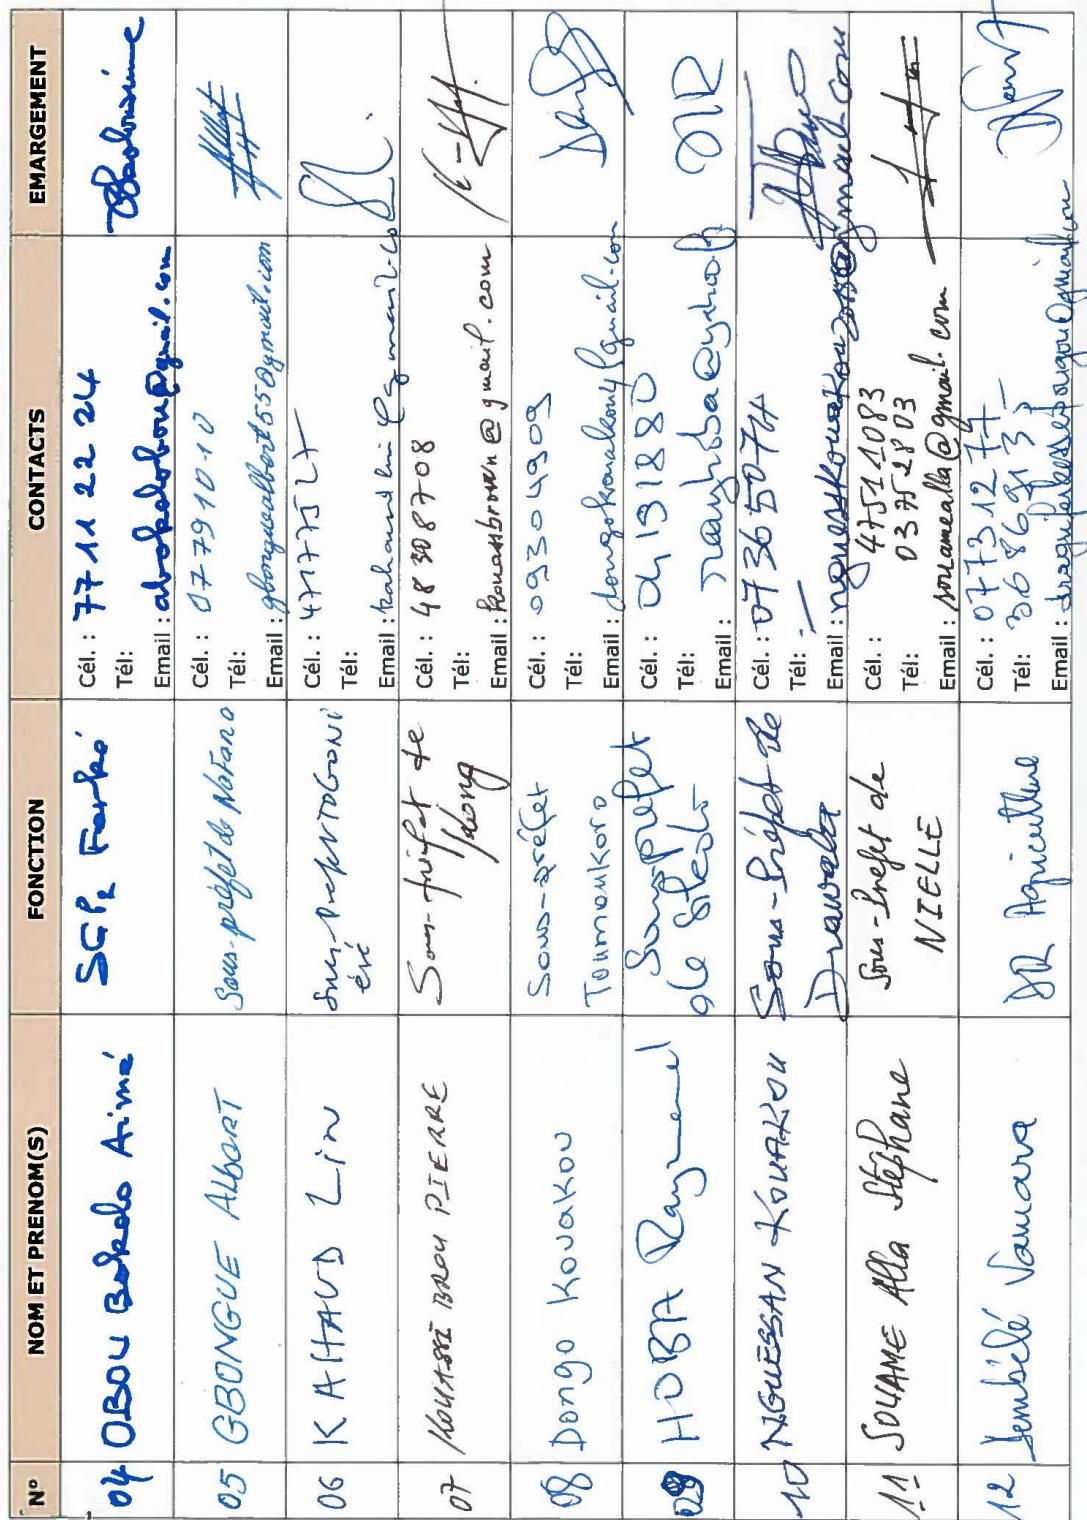 N° NOM ET PRENOM(S) FONCTION CONTACTS EMARGEMENT
04 OBOU Bokolo Aimé SGP2 Ferké
Cél. : 77 11 22 24
Tél:
Email : abokolobou@gmail.com
05 GBONGUE AlbeRT Sous-préfet de Nafana
Cél. : 07791010
Tél:
Email : gbonguealbert55@gmail.com
06 KAHAUD Lin Sous-Prefet TOGONI
éré
Cél. : 47177527
Tél:
Email : kahaudlin@gmail.co
07 KOUASSI BROU PIERRE Sous-préfet de
Kong
Cél. : 48308708
Tél:
Email : kouassbrown@gmail.com
08 Dongo Kouakou Sous-préfet
Toumoukoro
Cél. : 09304909
Tél:
Email : dongokouakou4@gmail.com
09 HOBA Raymond Sous-préfet
de Sikolo
Cél. : 04131880
Tél:
Email :
10 NGUESSAN KOUAKOU Sous-Préfet de
Diawala
Cél. : 07365074
Tél: —
Email :
11 SOUAME Alla Stéphane Sous-Prefet de
NIELLE
Cél. : 47511083
Tél: 03752803
Email : souamealla@gmail.com
12 Dembélé Vamara DR Agriculture
Cél. : 07731277
Tél: 36869137
Email :